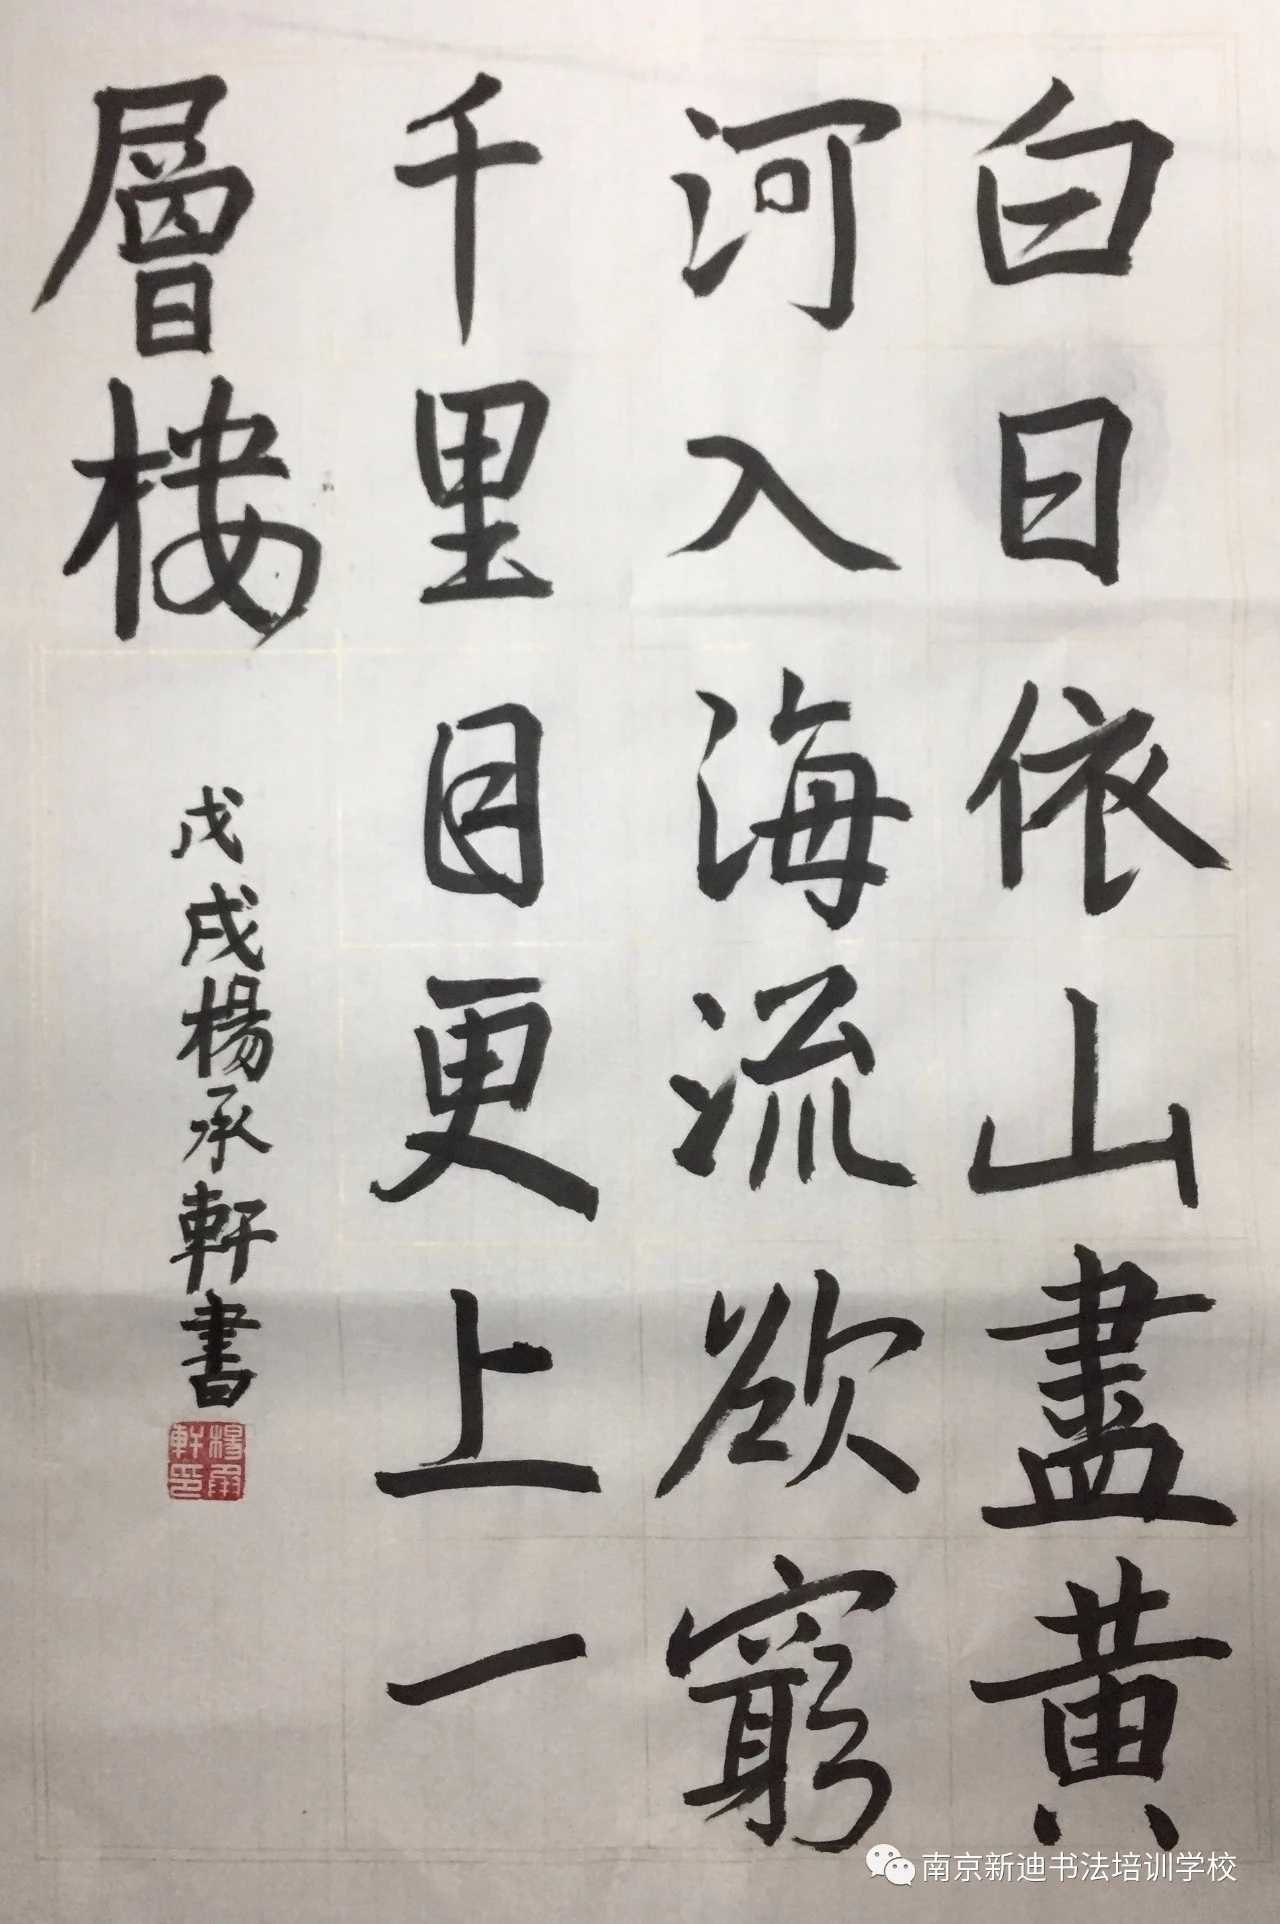 白日依山盡黄
河入海流欲窮
千里目更上一
層楼
戊戌楊承軒書
楊承軒印
南京新迪书法培训学校